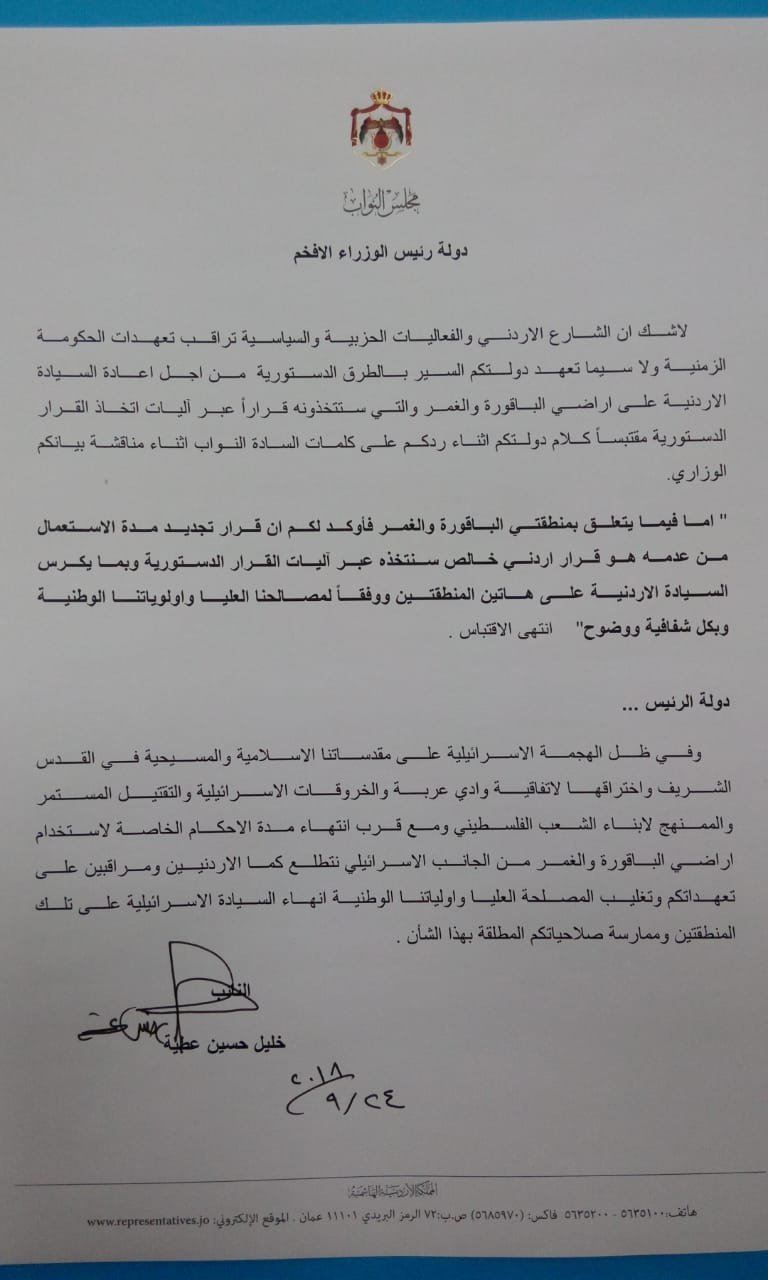 مجلس النواب
دولة رئيس الوزراء الافخم
لاشك ان الشارع الاردني والفعاليات الحزبية والسياسية تراقب تعهدات الحكومة
الزمنية ولا سيما تعهد دولتكم السير بالطرق الدستورية من اجل اعادة السيادة
الاردنية على اراضي الباقورة والغمر والتي ستتخذونه قراراً عبر آليات اتخاذ القرار
الدستورية مقتبساً كلام دولتكم اثناء ردكم على كلمات السادة النواب اثناء مناقشة بيانكم
الوزاري.
" اما فيما يتعلق بمنطقتي الباقورة والغمر فأوكد لكم ان قرار تجديد مدة الاستعمال
من عدمه هو قرار اردني خالص سنتخذه عبر آليات القرار الدستورية وبما يكرس
السيادة الاردنية على هاتين المنطقتين ووفقاً لمصالحنا العليا واولوياتنا الوطنية
وبكل شفافية ووضوح" انتهى الاقتباس .
دولة الرئيس ...
وفي ظل الهجمة الاسرائيلية على مقدساتنا الاسلامية والمسيحية في القدس
الشريف واختراقها لاتفاقية وادي عربة والخروقات الاسرائيلية والتقتيل المستمر
والممنهج لابناء الشعب الفلسطيني ومع قرب انتهاء مدة الاحكام الخاصة لاستخدام
اراضي الباقورة والغمر من الجانب الاسرائيلي نتطلع كما الاردنيين ومراقبين على
تعهداتكم وتغليب المصلحة العليا واولياتنا الوطنية انهاء السيادة الاسرائيلية على تلك
المنطقتين وممارسة صلاحياتكم المطلقة بهذا الشأن .
النائب
خليل حسين عطية
٢٠١٨
٩/٢٤
المملكة الأردنية الهاشمية
هاتف:٥٦٣٥١٠٠ - ٥٦٣٥٢٠٠ فاكس: (٥٦٨٥٩٧٠) ص.ب:٧٢ الرمز البريدي ١١١٠١ عمان . الموقع الإلكتروني: www.representatives.jo